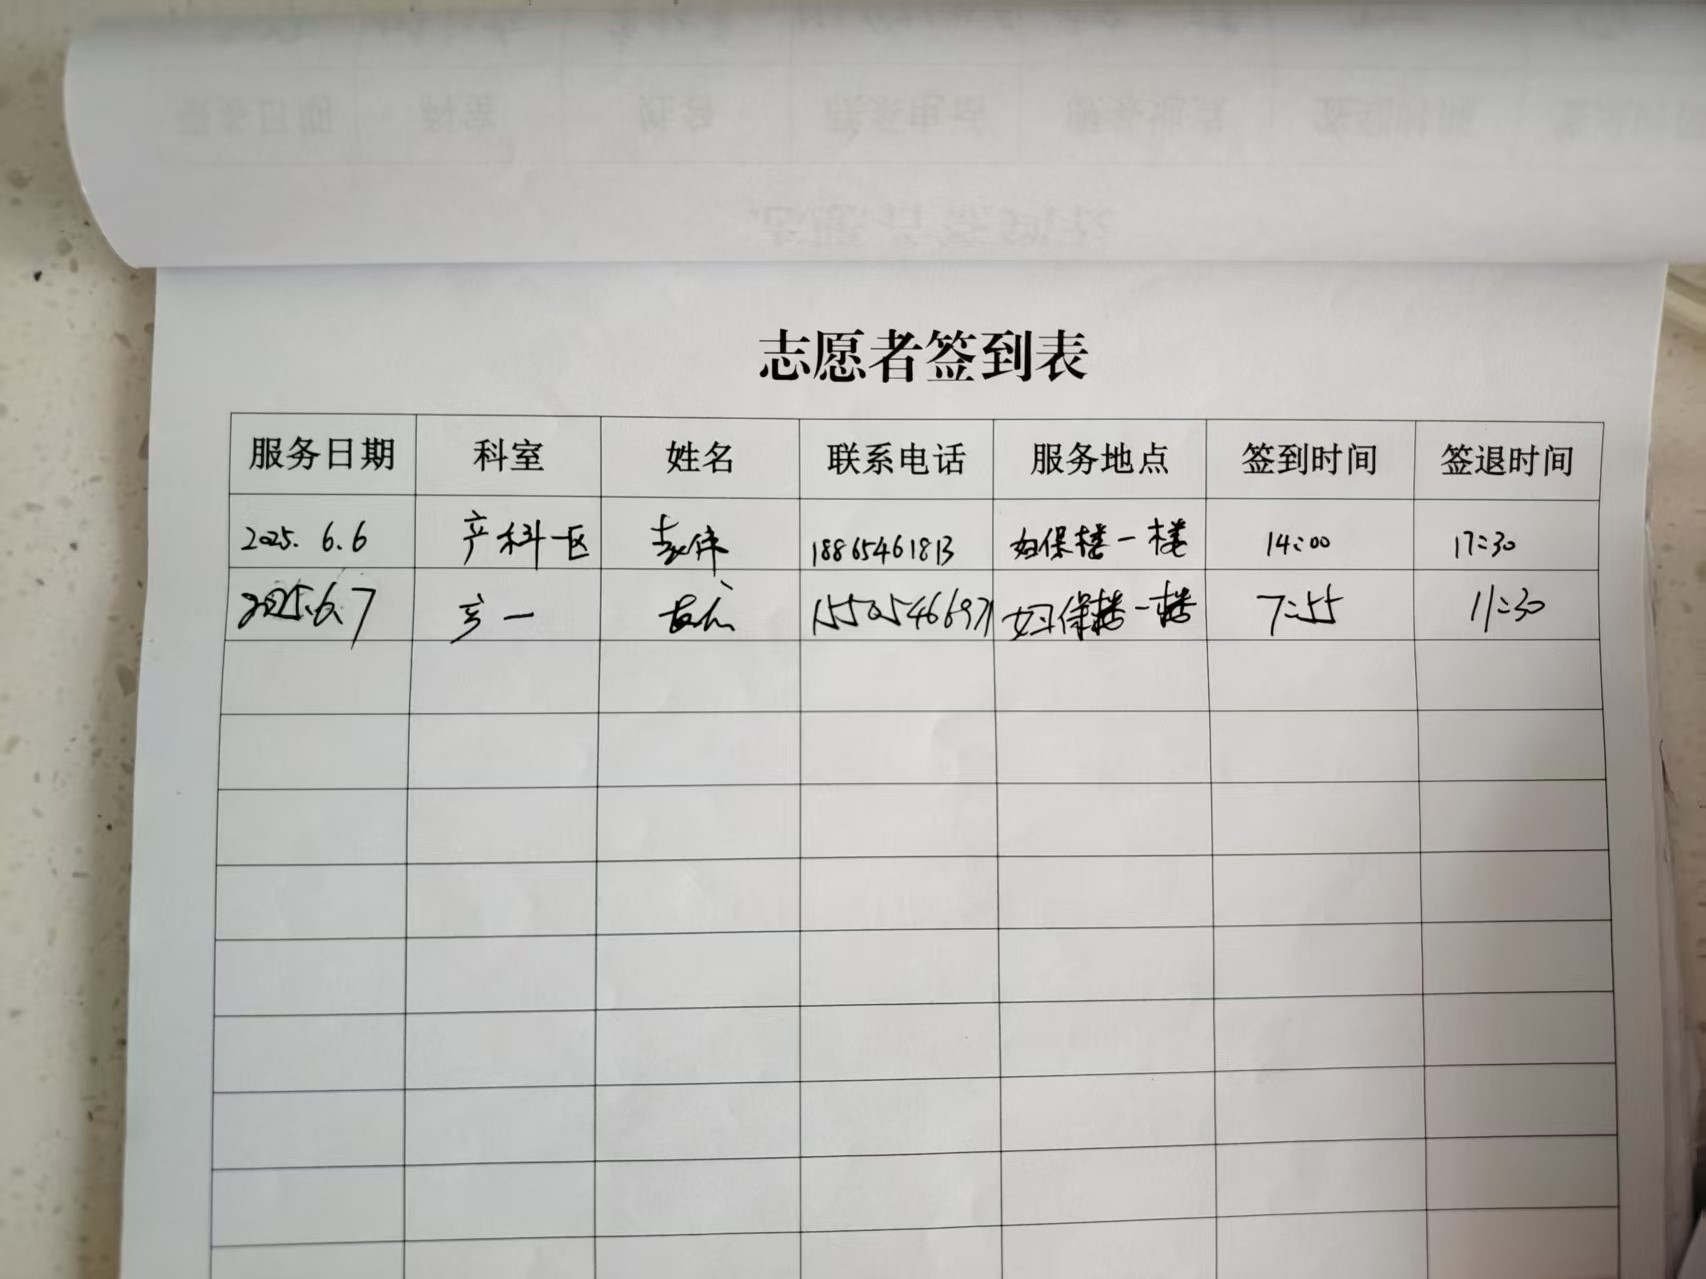 志愿者签到表
服务日期 科室 姓名 联系电话 服务地点 签到时间 签退时间
2025.6.6 产科一区 18865461813 妇保楼一楼 14:00 17:30
2025.6.7 产一 妇保楼一楼 7:55 11:30